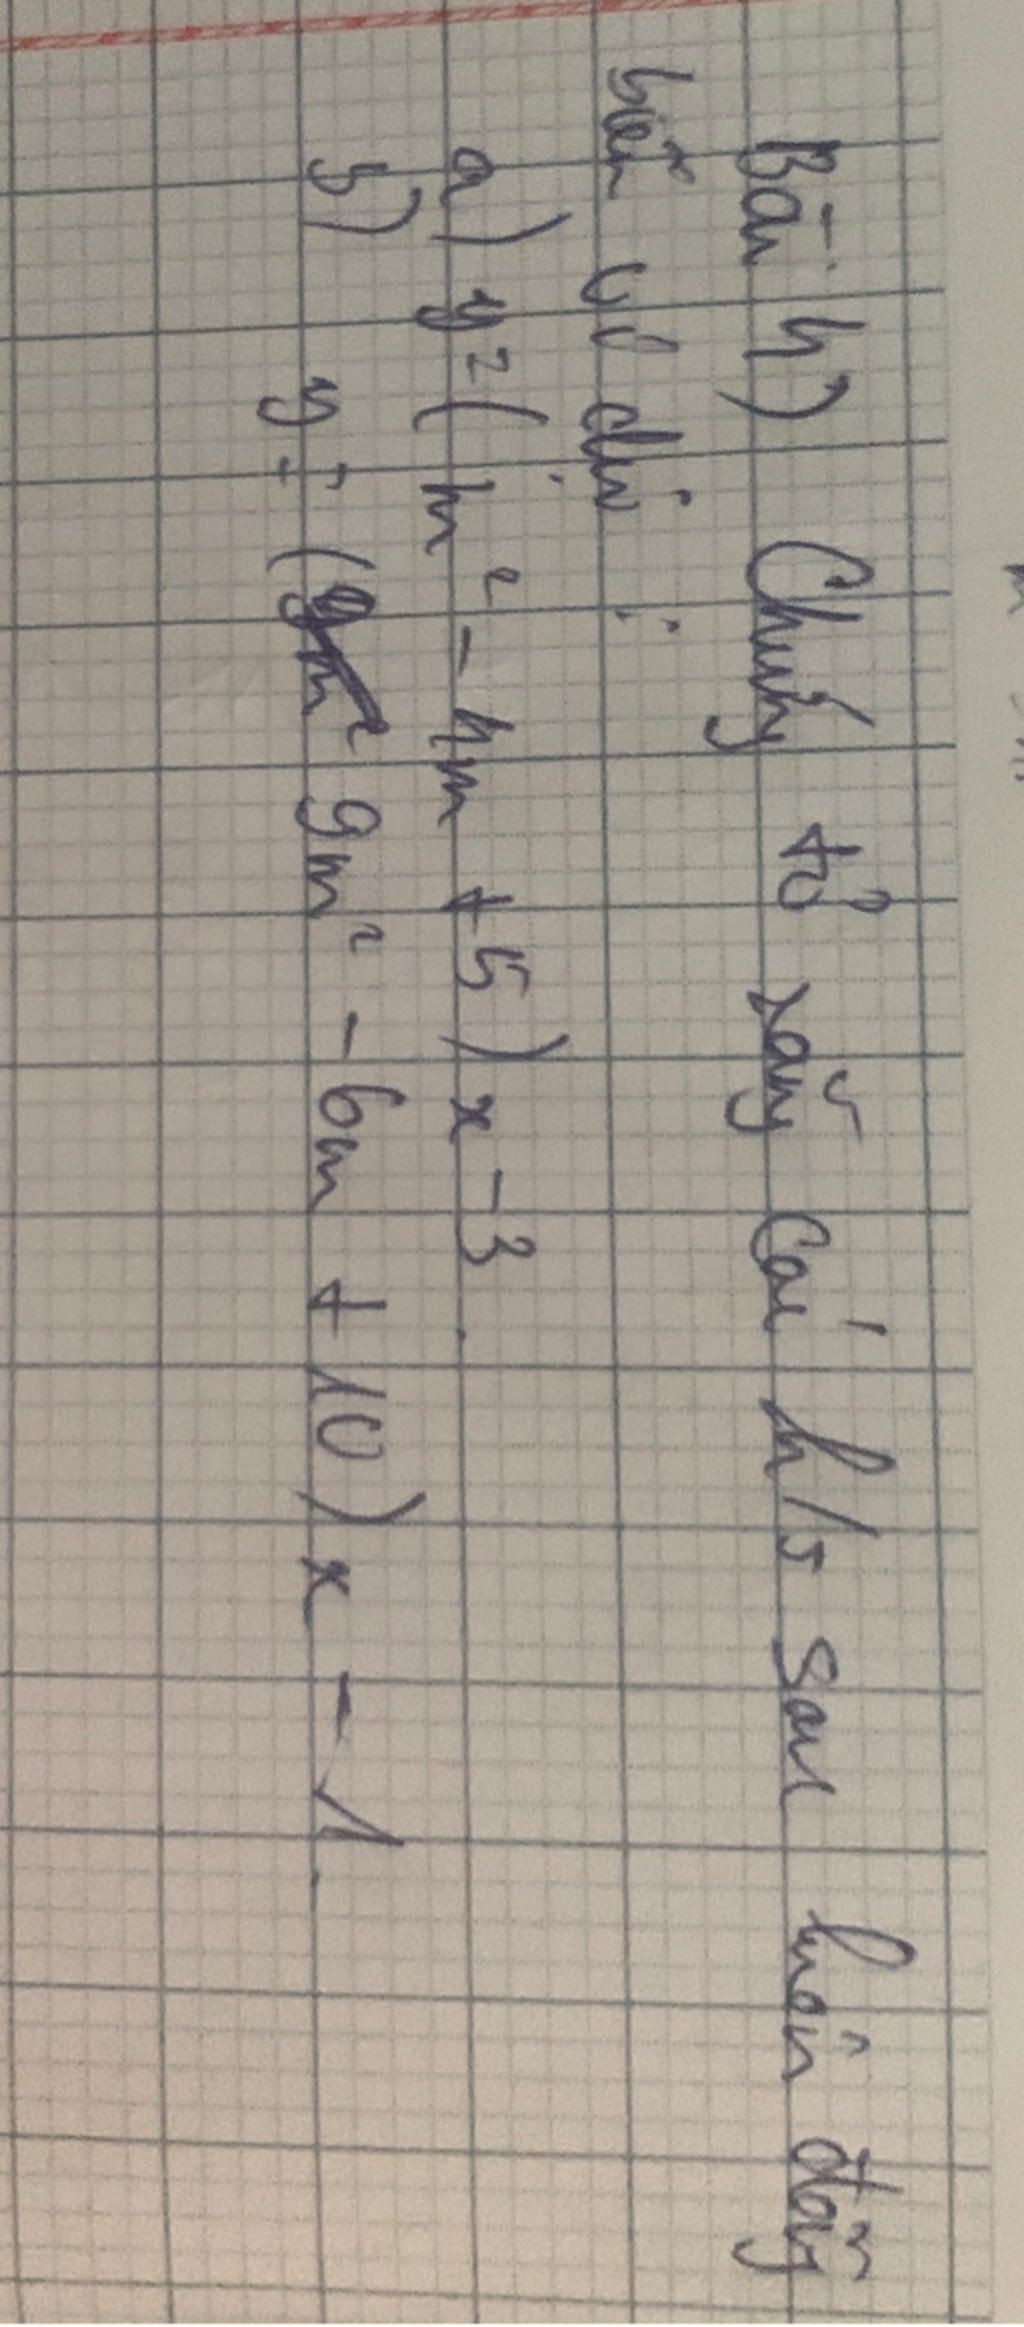 Bài 4) Chứng tỏ rằng các h/s sau luôn đồng
biến với
a) y = (m² - 4m + 5) x - 3.
b) y = (9m² - 6m + 10) x - 1.